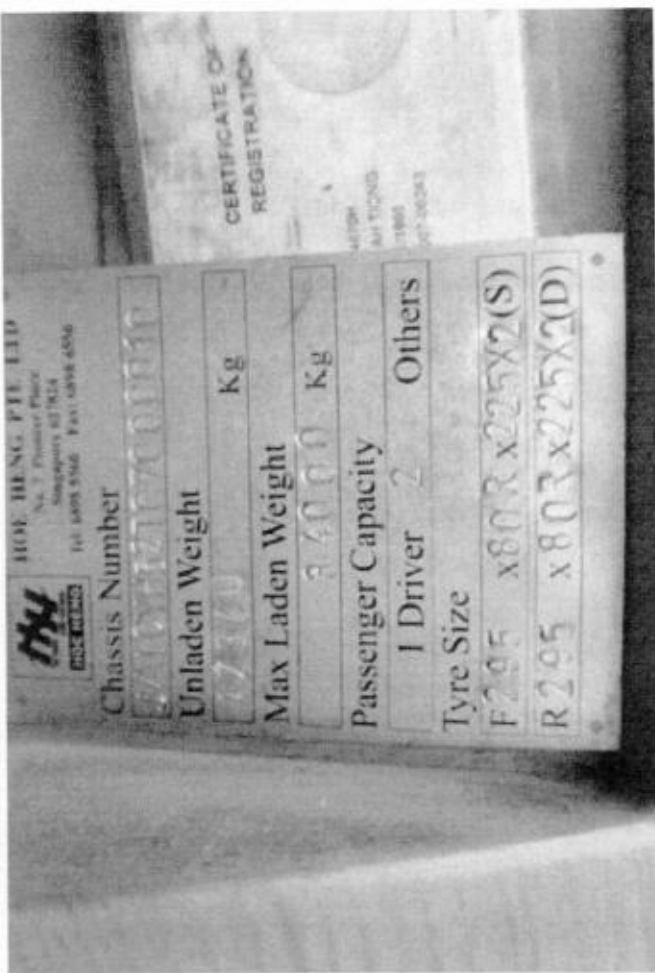 HOE HENG PTE LTD
No. 7 Pioneer Place
Singapore 627824
Tel: 6898 9366 Fax: 6898 6556
HOE HENG
Chassis Number
Unladen Weight
Kg
Max Laden Weight
34000 Kg
Passenger Capacity
1 Driver 2 Others
Tyre Size
F295 x80R x225X2(S)
R295 x80R x225X2(D)
CERTIFICATE OF
REGISTRATION